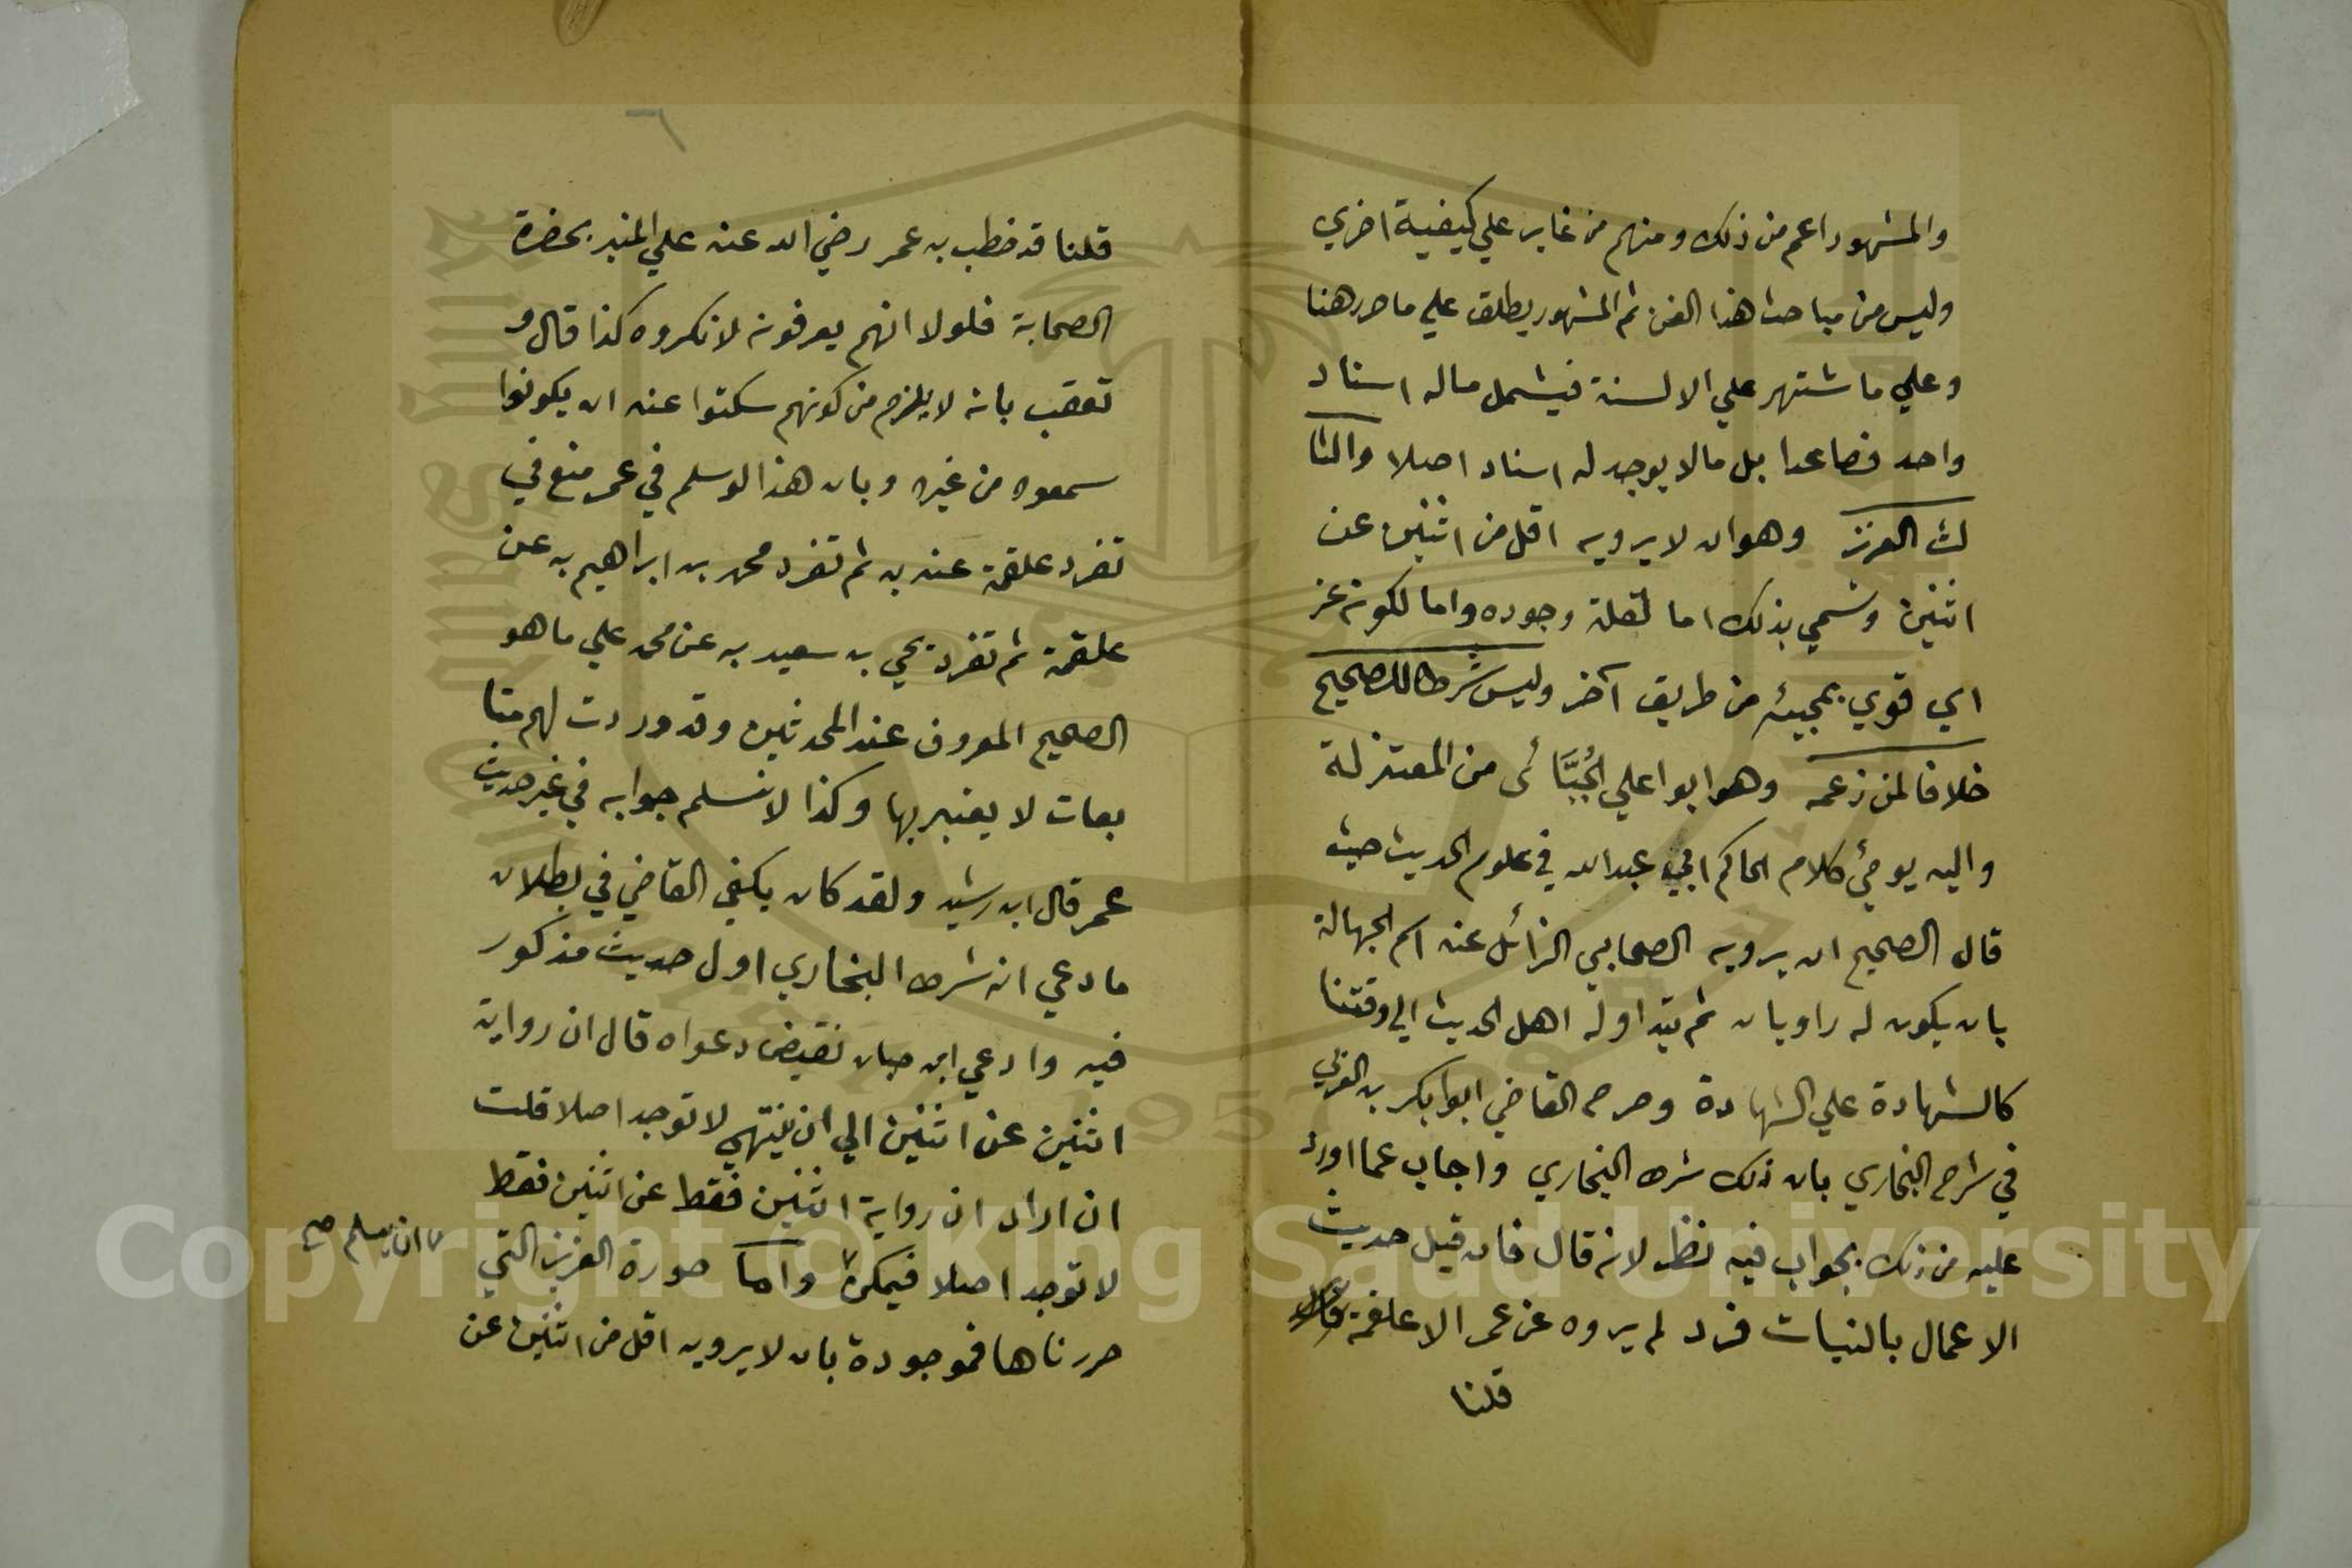 والمشهور اعم من ذلك ومنهم من غاير علي كيفية اخري
وليس من مباحث هذا الفن ثم المشهور يطلق علي ما حرر هنا
وعلي ما شتهر علي الالسنة فيشمل ماله اسناد
واحد فصاعدا بل مالا يوجد له اسناد اصلا والثا
لث العزيز وهو ان لا يرويه اقل من اثنين عن
اثنين وسمي بذلك اما لقلة وجوده واما لكونه عز
اي قوي بمجيئه من طريق آخر وليس شرطا للصحيح
خلافا لمن زعمه وهو ابو اعلي الجُبَّائى من المعتزلة
واليه يومئ كلام الحاكم ابي عبدالله في علوم الحديث حيث
قال الصحيح ان يرويه الصحابي الزائل عنه اسم الجهالة
بان يكون له راويان ثم يتداوله اهل الحديث الي وقتنا
كالشهادة علي الشهادة وصرح القاضي ابوا بكر بن العربي
في شرح البخاري بان ذلك شرط البخاري واجاب عما اورد
عليه من ذلك بجواب فيه نظر لانه قال فان قيل حديث
الاعمال بالنيات فرد لم يروه عن عمر الا علقمة قال
قلنا
٦
قلنا قد خطب به عمر رضي الله عنه علي المنبر بحضرة
الصحابة فلولا انهم يعرفونه لانكروه كذا قال و
تعقب بانه لا يلزم من كونهم سكتوا عنه ان يكونوا
سمعوه من غيره وبان هذا لو سلم في عمر منع في
تفرد علقمة عنه به ثم تفرد محمد بن ابراهيم به عن
علقمة ثم تفرد يحي بن سعيد به عن محمد علي ما هو
الصحيح المعروف عند المحدثين وقد وردت لهم متا
بعات لا يعتبر بها وكذا لا نسلم جوابه في غير حديث
عمر قال ابن رشيد ولقد كان يكفي القاضي في بطلان
ما دعي انه شرط البخاري اول حديث مذكور
فيه وادعي ابن حبان نقيض دعواه قال ان رواية
اثنين عن اثنين الي ان ينتهي لا توجد اصلا قلت
ان اراد ان رواية اثنين فقط عن اثنين فقط
لا توجد اصلا فيمكن واما صورة العزيز التي
ان يسلم صح
حررناها فموجودة بان لا يرويه اقل من اثنين عن
Copyright © King Saud University
1957